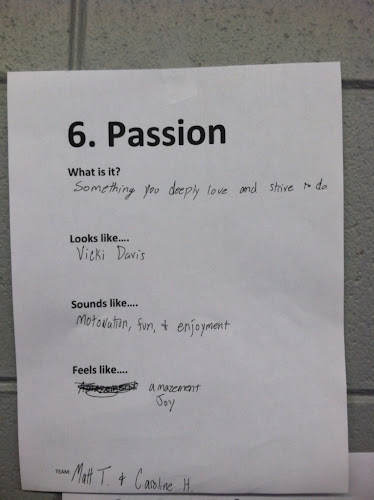 6. Passion
What is it?
Something you deeply love and strive to do
Looks like....
Vicki Davis
Sounds like....
Motovation, fun, & enjoyment
Feels like....
amazement
Joy
TEAM: Matt T. & Caroline H.